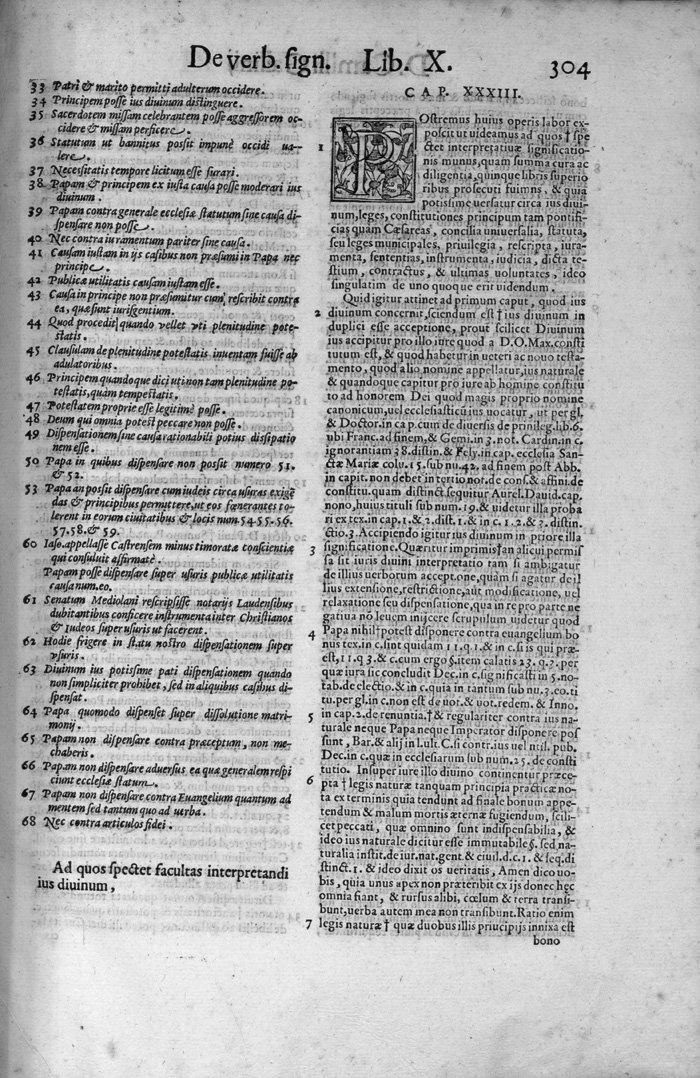 De verb. sign. Lib. X. 304
33 Patri & marito permitti adulterum occidere.
34 Principem posse ius diuinum distinguere.
35 Sacerdotem missam celebrantem posse aggressorem oc-
cidere & missam perficere.
36 Statutum ut bannitus possit impunè occidi ua-
lere.
37 Necessitatis tempore licitum esse furari.
38 Papam & principem ex iusta causa posse moderari ius
diuinum.
39 Papam contra generale ecclesiæ statutum sine causa di-
spensare non posse.
40 Nec contra iuramentum pariter sine causa.
41 Causam iustam in ijs casibus non præsumi in Papa nec
principe.
42 Publicæ utilitatis causam iustam esse.
43 Causa in principe non præsumitur cum rescribit contra
ea, quæ sunt iurisgentium.
44 Quod procedit quando vellet vti plenitudine pote-
statis.
45 Clausulam de plenitudine potestatis inuentam fuisse ab
adulatoribus.
46 Principem quandoque dici uti non tam plenitudine po-
testatis, quàm tempestatis.
47 Potestatem proprie esse legitimè posse.
48 Deum qui omnia potest peccare non posse.
49 Dispensationem sine causa rationabili potius dissipatio
nem esse.
50 Papa in quibus dispensare non possit numero 51.
& 52.
53 Papa an possit dispensare cum iudeis circa usuras exigẽ
das & principibus permittere, ut eos fœnerantes to-
lerent in eorum ciuitatibus & locis num. 54. 55. 56.
57. 58. & 59.
60 Iaso. appellasse Castrensem minus timoratæ conscientiæ
qui consuluit affirmatè.
Papam posse dispensare super usuris publicæ utilitatis
causa num. eo.
61 Senatum Mediolani rescripsisse notarijs Laudensibus
dubitantibus conficere instrumenta inter Christianos
& Iudeos super usuris ut facerent.
62 Hodie frigere in statu nostro dispensationem super
vsuris.
63 Diuinum ius potissime pati dispensationem quando
non simpliciter prohibet, sed in aliquibus casibus di-
spensat.
64 Papa quomodo dispenset super dissolutione matri-
monij.
65 Papam non dispensare contra præceptum, non me-
chaberis.
66 Papam non dispensare aduersus ea quæ generalem respi
ciunt ecclesiæ statum.
67 Papam non dispensare contra Euangelium quantum ad
mentem sed tantum quo ad uerba.
68 Nec contra articulos fidei.
Ad quos spectet facultas interpretandi
ius diuinum,
CAP. XXXIII.
POstremus huius operis labor ex
poscit ut uideamus ad quos † spe
1 ctet interpretatiuæ significatio-
nis munus, quam summa cura ac
diligentia, quinque libris superio
ribus prosecuti fuimus, & quia
potissime uersatur circa ius diui-
num, leges, constitutiones principum tam pontifi-
cias quam Cæsareas, concilia uniuersalia, statuta,
seu leges municipales, priuilegia, rescripta, iura-
menta, sententias, instrumenta, iudicia, dicta te-
stium, contractus, & ultimas uoluntates, ideo
singulatim de uno quoque erit uidendum.
Quid igitur attinet ad primum caput, quod ius
2 diuinum concernit, sciendum est † ius diuinum in
duplici esse acceptione, prout scilicet Diuinum
ius accipitur pro illo iure quod a D.O.Max. consti
tutum est, & quod habetur in ueteri ac nouo testa-
mento, quod alio nomine appellatur, ius naturale
& quandoque capitur pro iure ab homine constitu
to ad honorem Dei quod magis proprio nomine
canonicum, uel ecclesiasticũ ius uocatur, ut per gl.
& Doctor. in ca p. cum de diuersis de priuileg. lib. 6.
ubi Franc. ad finem, & Gemi. in 3. not. Cardin. in c.
ignorantiam 38. distin. & Fely. in cap. ecclesia San-
ctæ Mariæ colu. 15. sub nu. 42. ad finem post Abb.
in capit. non debet in tertio not. de cons. & affini. de
constitu. quam distinct. sequitur Aurel. Dauid. cap.
nono, huius tituli sub num. 19. & uidetur illa proba
ri ex tex. in cap. 1. & 2. dist. 1. & in c. 1. 2. & 3. distin.
ctio. 3. Accipiendo igitur ius diuinum in priore illa
3 significatione. Quæritur imprimis † an alicui permis
sa sit iuris diuini interpretatio tam si ambigatur
de illius uerborum acceptione, quàm si agatur de il
lius extensione, restrictione, aut modificatione, uel
relaxatione seu dispensatione, qua in re pro parte ne
gatiua nõ leuem inijcere scrupulum uidetur quod
4 Papa nihil † potest disponere contra euangelium bo
nus tex. in c. sint quidam 11. q. 1. & in c. si is qui præ-
est, 11. q. 3. & c. cum ergo §. item calatis 23. q. 3. per
quæ iura sic concludit Dec. in c. significasti in 5. no-
tab. de electio. & in c. quia in tantum sub nu. 3. co. ti
tu. per gl. in c. non est de uot. & uot. redem. & Inno.
5 in cap. 2. de renuntia. † & regulariter contra ius na-
turale neque Papa neque Imperator disponere pos
sunt, Bar. & alij in l. ult. C. si contr. ius uel util. pub.
Dec. in c. quæ in ecclesiarum sub num. 25. de consti
tutio. Insuper iure illo diuino continentur præce-
6 pta † legis naturæ tanquam principia practicæ no-
ta ex terminis quia tendunt ad finale bonum appe-
tendum & malum mortis æternæ fugiendum, scili-
cet peccati, quæ omnino sunt indispensabilia, &
ideo ius naturale dicitur esse immutabile §. sed na-
turalia instit. de iur. nat. gent. & ciuil. d. c. 1. & leq. di
stinct. 1. & ideo dixit os ueritatis, Amen dico uo-
bis, quia unus apex non præteribit ex ijs donec hęc
omnia fiant, & rursus alibi, cœlum & terra transi-
bunt, uerba autem mea non transibunt. Ratio enim
7 legis naturæ † quæ duobus illis principijs innixa est
bono